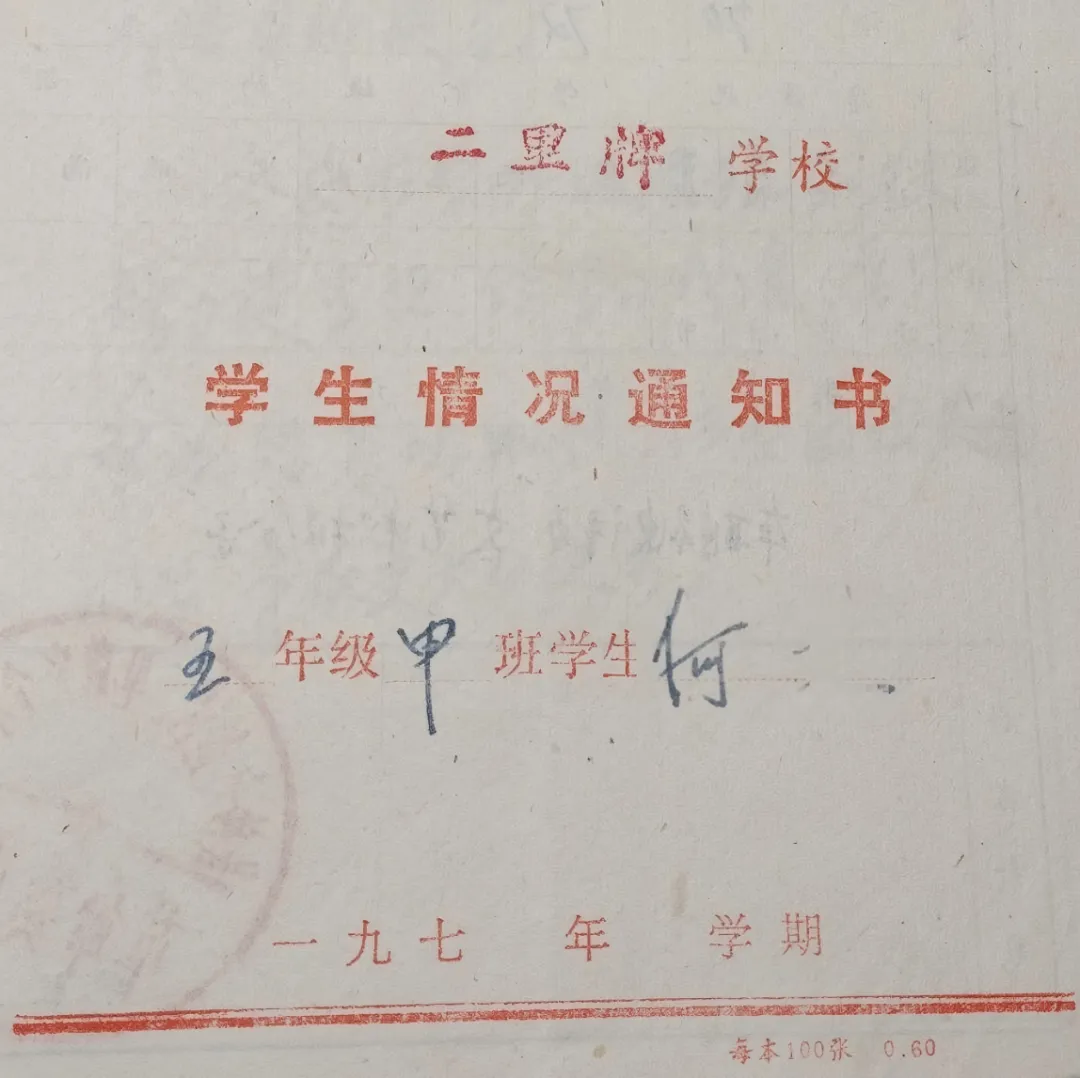 二里牌学校
学生情况通知书
五年级甲班学生何
一九七 年 学期
每本100张 0.60